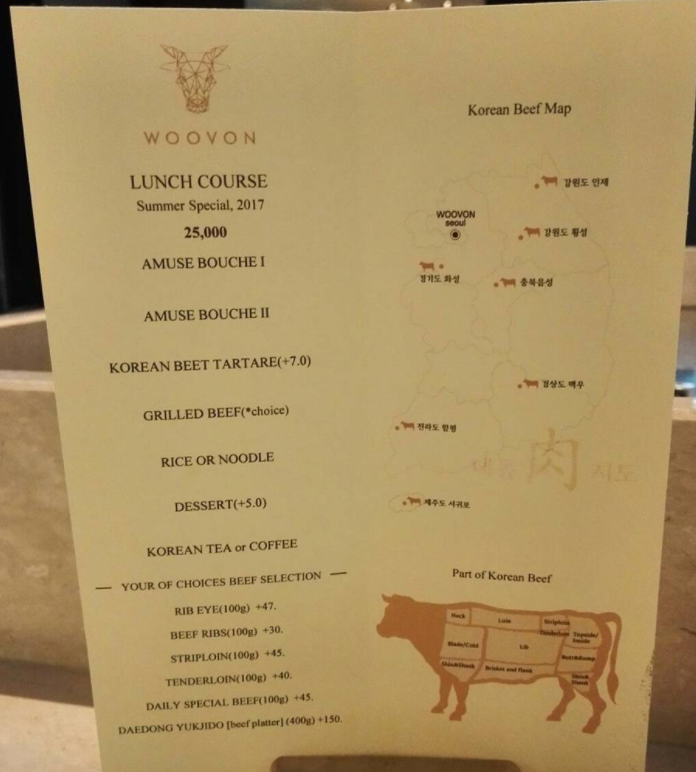 WOOVON
LUNCH COURSE
Summer Special, 2017
25,000
AMUSE BOUCHE I
AMUSE BOUCHE II
KOREAN BEET TARTARE(+7.0)
GRILLED BEEF(*choice)
RICE OR NOODLE
DESSERT(+5.0)
KOREAN TEA or COFFEE
YOUR OF CHOICES BEEF SELECTION
RIB EYE(100g) +47.
BEEF RIBS(100g) +30.
STRIPLOIN(100g) +45.
TENDERLOIN(100g) +40.
DAILY SPECIAL BEEF(100g) +45.
DAEDONG YUKJIDO [beef platter] (400g) +150.
Korean Beef Map
강원도 인제
WOOVON
seoul
강원도 횡성
경기도 화성
충북음성
경상도 백우
전라도 함평
대동 肉 지도
제주도 서귀포
Part of Korean Beef
Neck
Loin
Striploin
Tenderloin
Topside/
Inside
Blade/Cold
Lib
Shin&Shank
Brisket and flank
Shin&
Shank